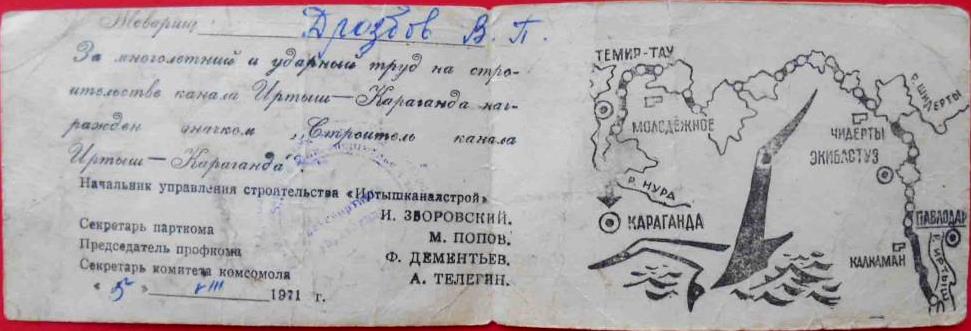 Товарищ Дроздов В. П.
За многолетний и ударный труд на стро-
ительстве канала Иртыш—Караганда наг-
ражден значком „Строитель канала
Иртыш—Караганда“.
Начальник управления строительства «Иртышканалстрой»
И. ЗБОРОВСКИЙ.
Секретарь парткома
М. ПОПОВ.
Председатель профкома
Ф. ДЕМЕНТЬЕВ.
Секретарь комитета комсомола
А. ТЕЛЕГИН.
« 5 » VIII 1971 г.
ТЕМИР-ТАУ
МОЛОДЁЖНОЕ
р. НУРА
КАРАГАНДА
р. ШИДЕРТЫ
ЧИДЕРТЫ
ЭКИБАСТУЗ
ПАВЛОДАР
КАЛКАМАН
р. ИРТЫШ